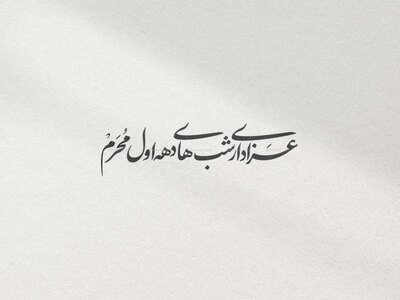 عزاداری شب های دهه اول محرم